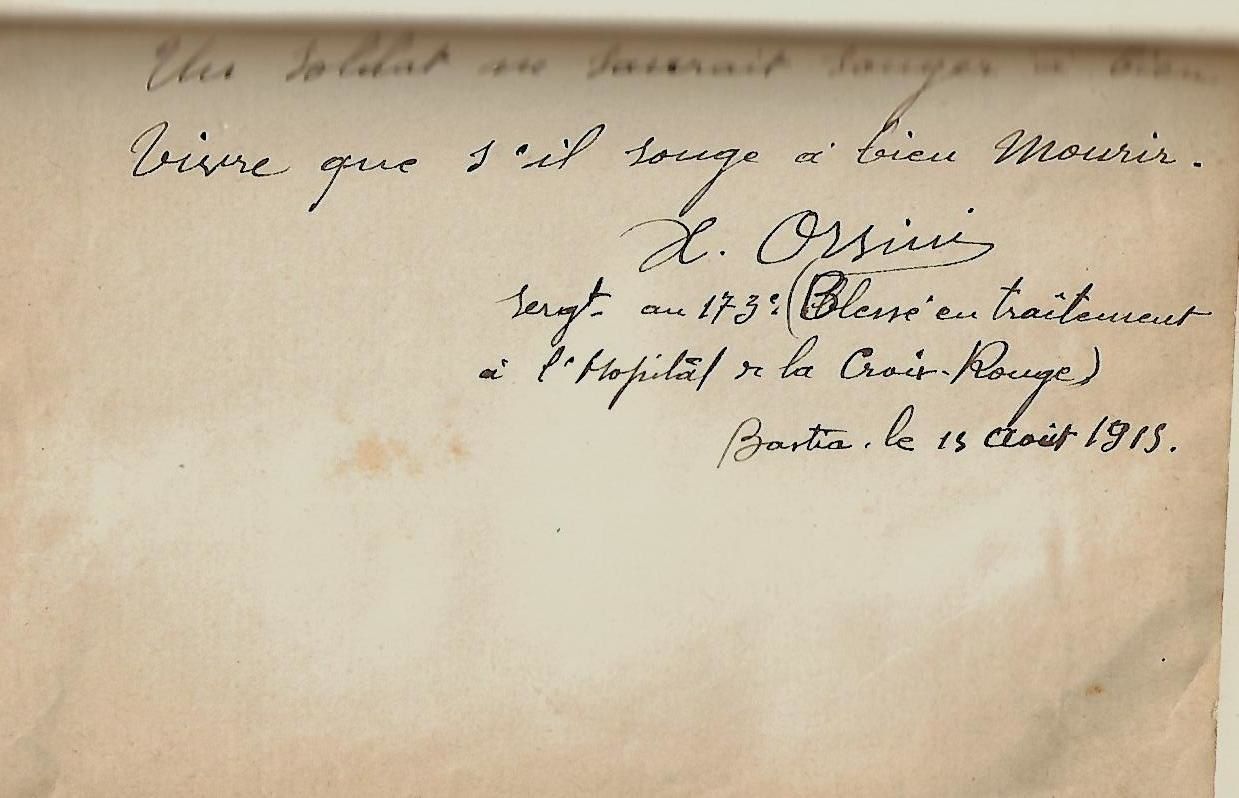 Un soldat ne saurait songer à bien
Vivre que s'il songe à bien Mourir.
X. Orsini
Sergt au 173e (Blessé en traîtement
à l'Hopitâl de la Croix-Rouge)
Bastia. le 15 Août 1915.